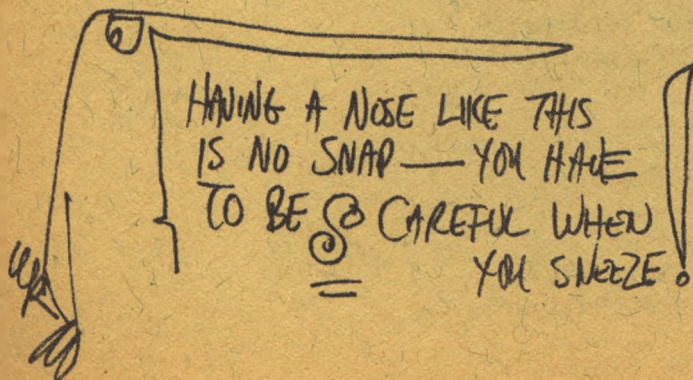 HAVING A NOSE LIKE THIS
IS NO SNAP — YOU HAVE
TO BE SO CAREFUL WHEN
YOU SNEEZE!